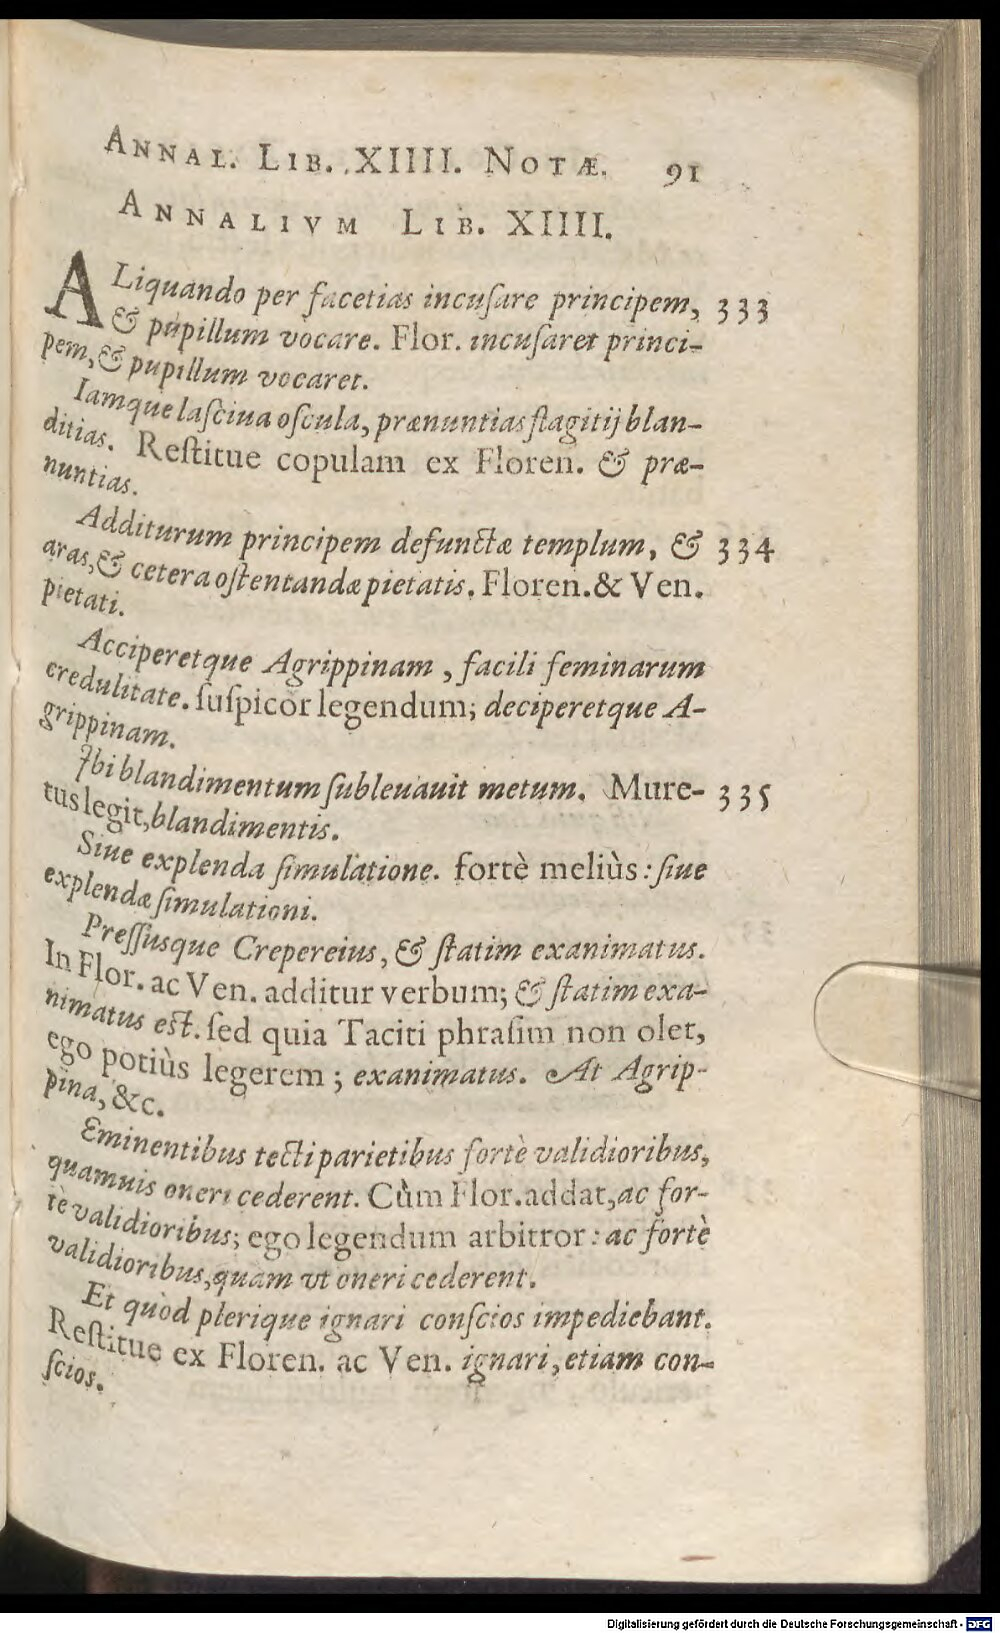 ANNAL. LIB. XIIII. NOTÆ. 91
ANNALIVM LIB. XIIII.
ALiquando per facetias incuſare principem, 333
& pupillum vocare. Flor. incuſaret princi-
pem, & pupillum vocaret.
Iamque laſciua oſcula, prænuntias flagitij blan-
ditias. Reſtitue copulam ex Floren. & præ-
nuntias.
Additurum principem defunctæ templum, & 334
aras, & cetera oſtentandæ pietatis. Floren. & Ven.
pietati.
Acciperetque Agrippinam, facili feminarum
credulitate. ſuſpicor legendum; deciperetque A-
grippinam.
Ibi blandimentum ſubleuauit metum. Mure- 335
tus legit, blandimentis.
Siue explenda ſimulatione. fortè meliùs: ſiue
explendæ ſimulationi.
Preſſusque Crepereius, & ſtatim exanimatus.
In Flor. ac Ven. additur verbum; & ſtatim exa-
nimatus eſt. ſed quia Taciti phraſim non olet,
ego potiùs legerem; exanimatus. At Agrip-
pina, &c.
Eminentibus tecti parietibus fortè validioribus,
quamuis oneri cederent. Cùm Flor. addat, ac for-
tè validioribus; ego legendum arbitror: ac fortè
validioribus, quam vt oneri cederent.
Et quòd plerique ignari conſcios impediebant.
Reſtitue ex Floren. ac Ven. ignari, etiam con-
ſcios.
Digitalisierung gefördert durch die Deutsche Forschungsgemeinschaft - DFG